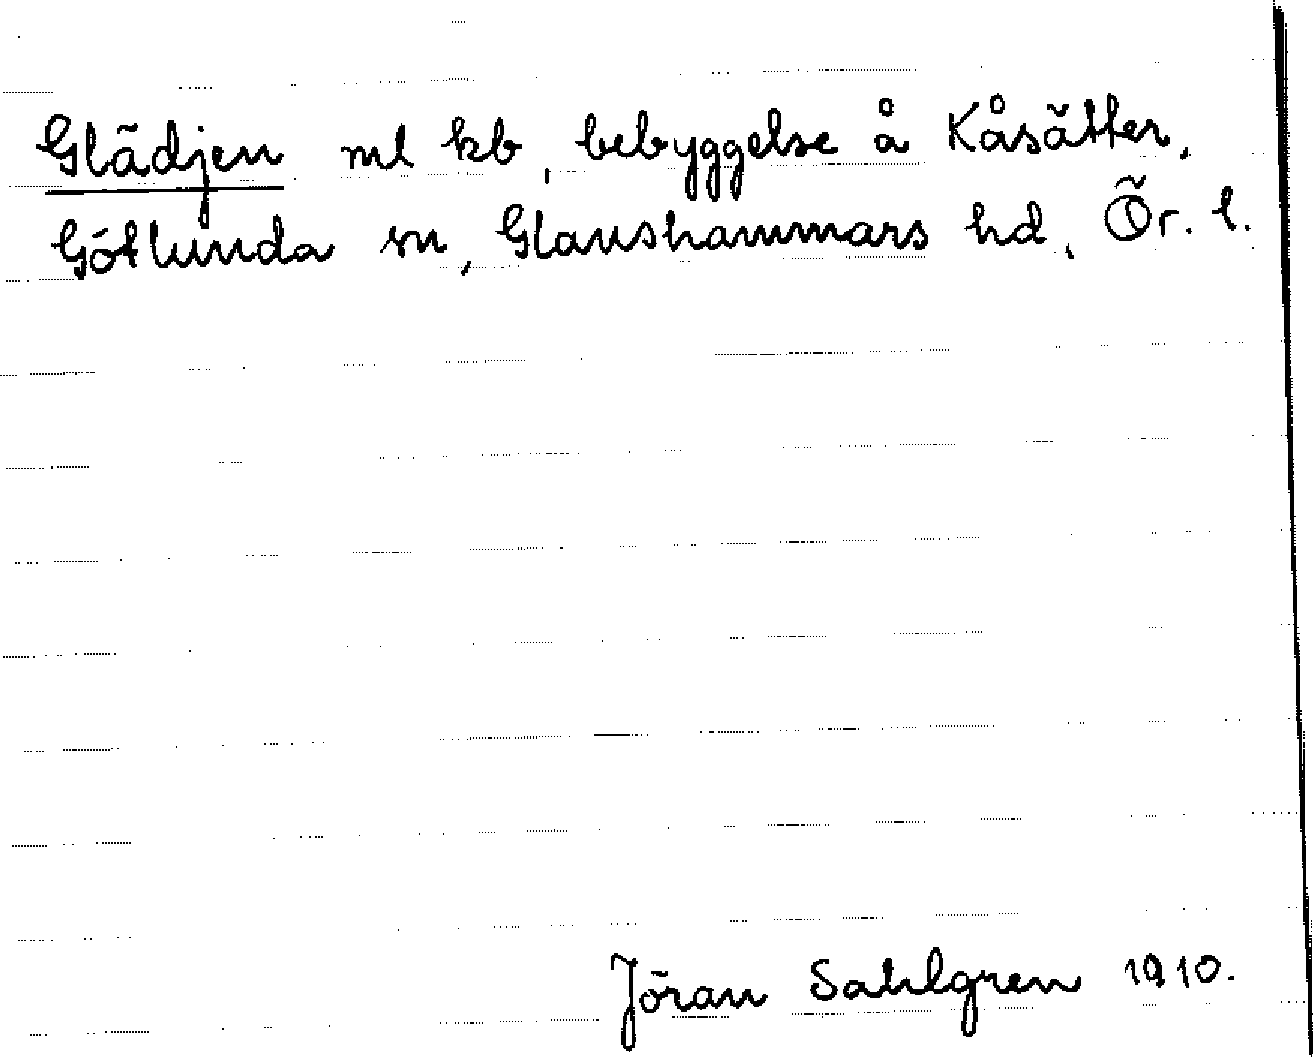 Glädjen ml kb, bebyggelse å Kåsätter,
Götlunda sn, Glanshammars hd, Ör. l.
Jöran Sahlgren 1910.